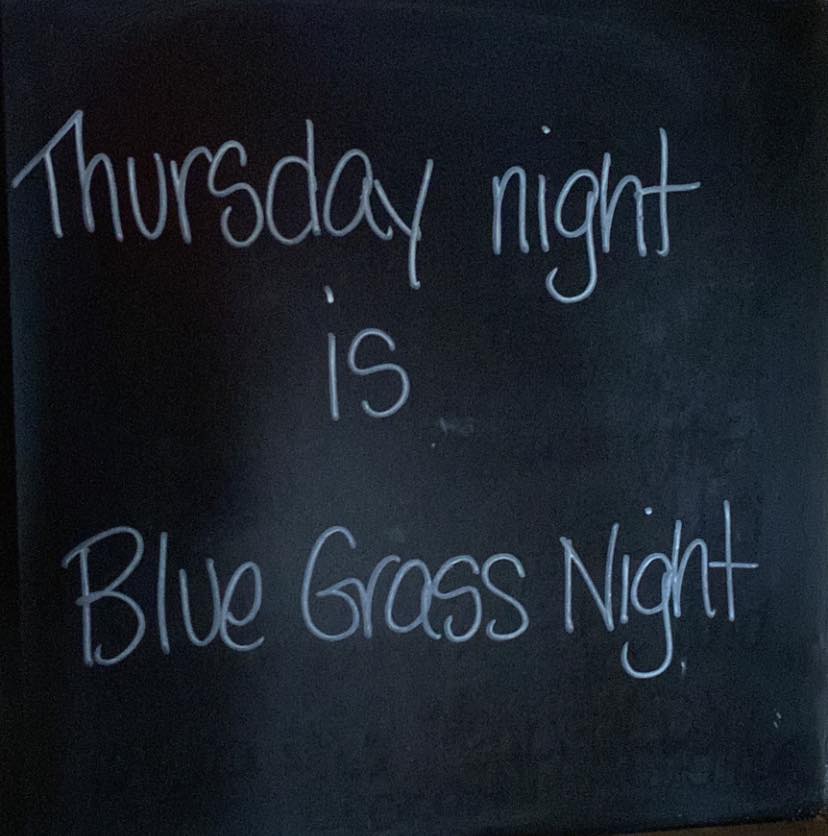 Thursday night
is
Blue Grass Night